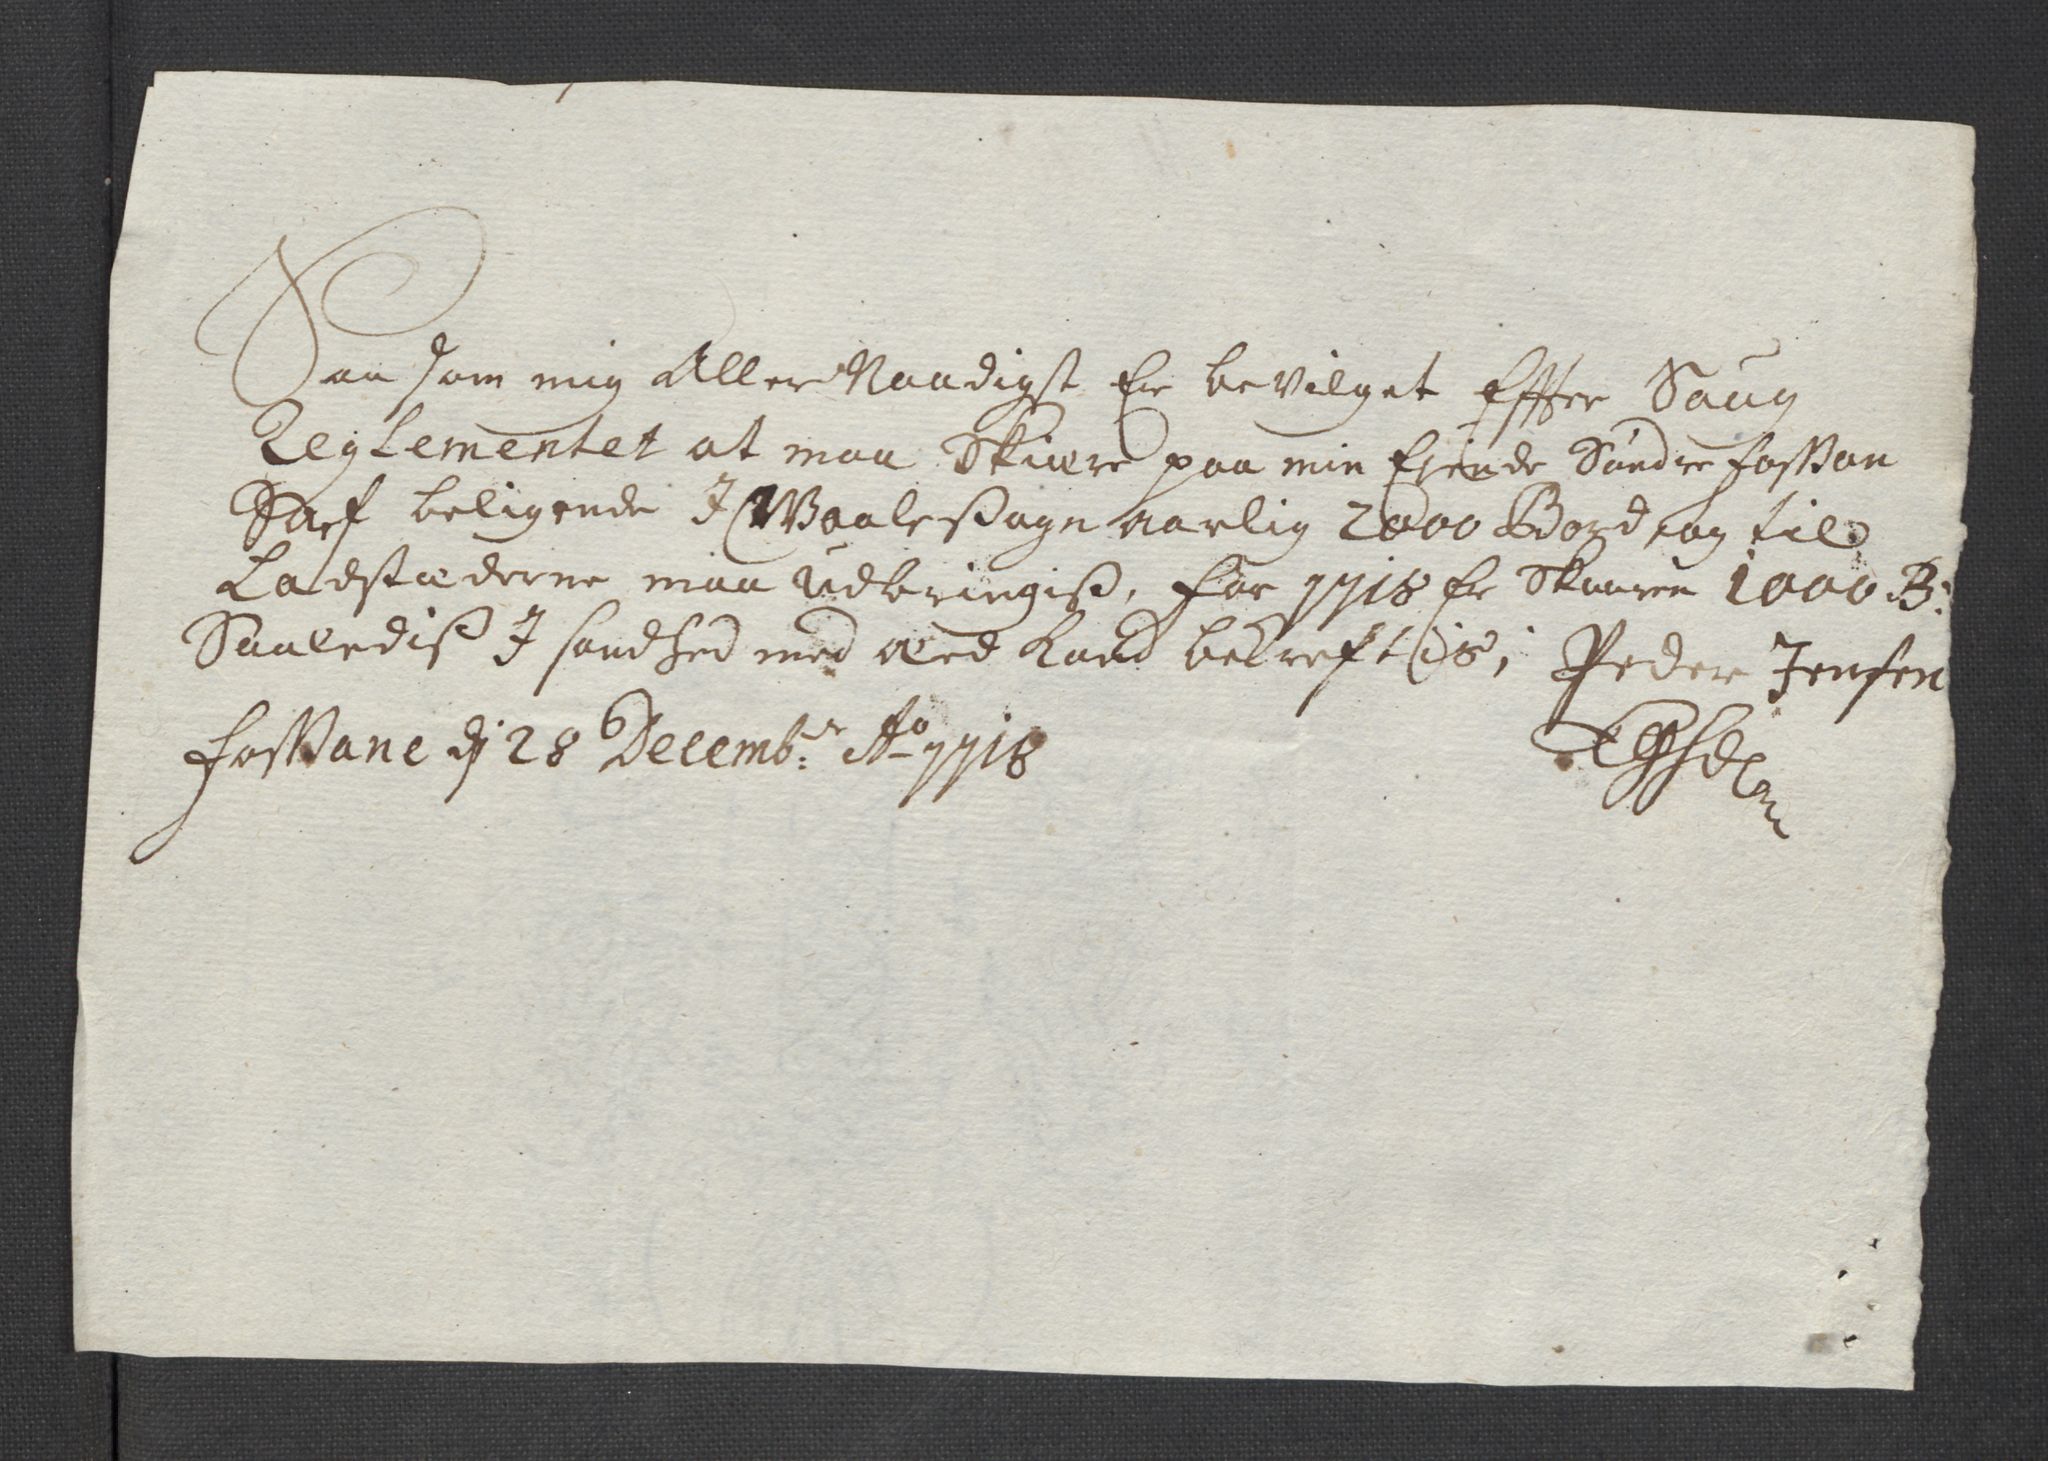 Saa som mig Aller Naadigst Er bevilget Effter Saug
Reglementet at maa Skiære paa min Eiende Søndre Fossan
Saug beligende J Waale Sogn aarlig 2000 Bord, og til
Ladstæderne maa udbringiß, for 1718 Er Skaaren 1000 B:
Saalediß J sandhed med æed kand bekreftis; Peder Jensen
Fossane dj 28 Decembr: Ao 1718